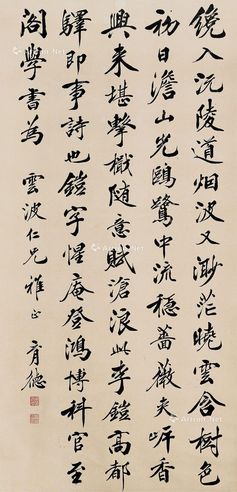 纔入沅陵道烟波又渺茫曉雲含樹色
初日澹山光鷗鷺中流穩薔薇夾岸香
興来堪擊檝随意賦滄浪此李鎧高都
驛即事詩也鎧字惺庵登鴻博科官至
閣學書為 雲波仁兄 雅正 育德